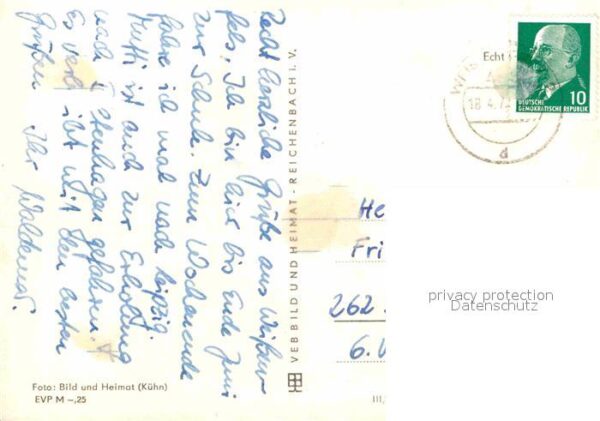 Recht herzliche Grüße aus Weißen-
fels. Ich bin hier bis Ende Juni
zur Schule. Zum Wochenende
fahre ich mal nach Leipzig.
Mutti ist auch zur Erholung
nach Ostenhagen gefahren.
Es verbleibt mit den besten
Grüßen Ihr Waldemar.
Foto: Bild und Heimat (Kühn)
EVP M –,25
VEB BILD UND HEIMAT · REICHENBACH i. V.
III,
Echt
18.4.7
d
10
DEUTSCHE
DEMOKRATISCHE REPUBLIK
He
Fri
262
6.
privacy protection
Datenschutz